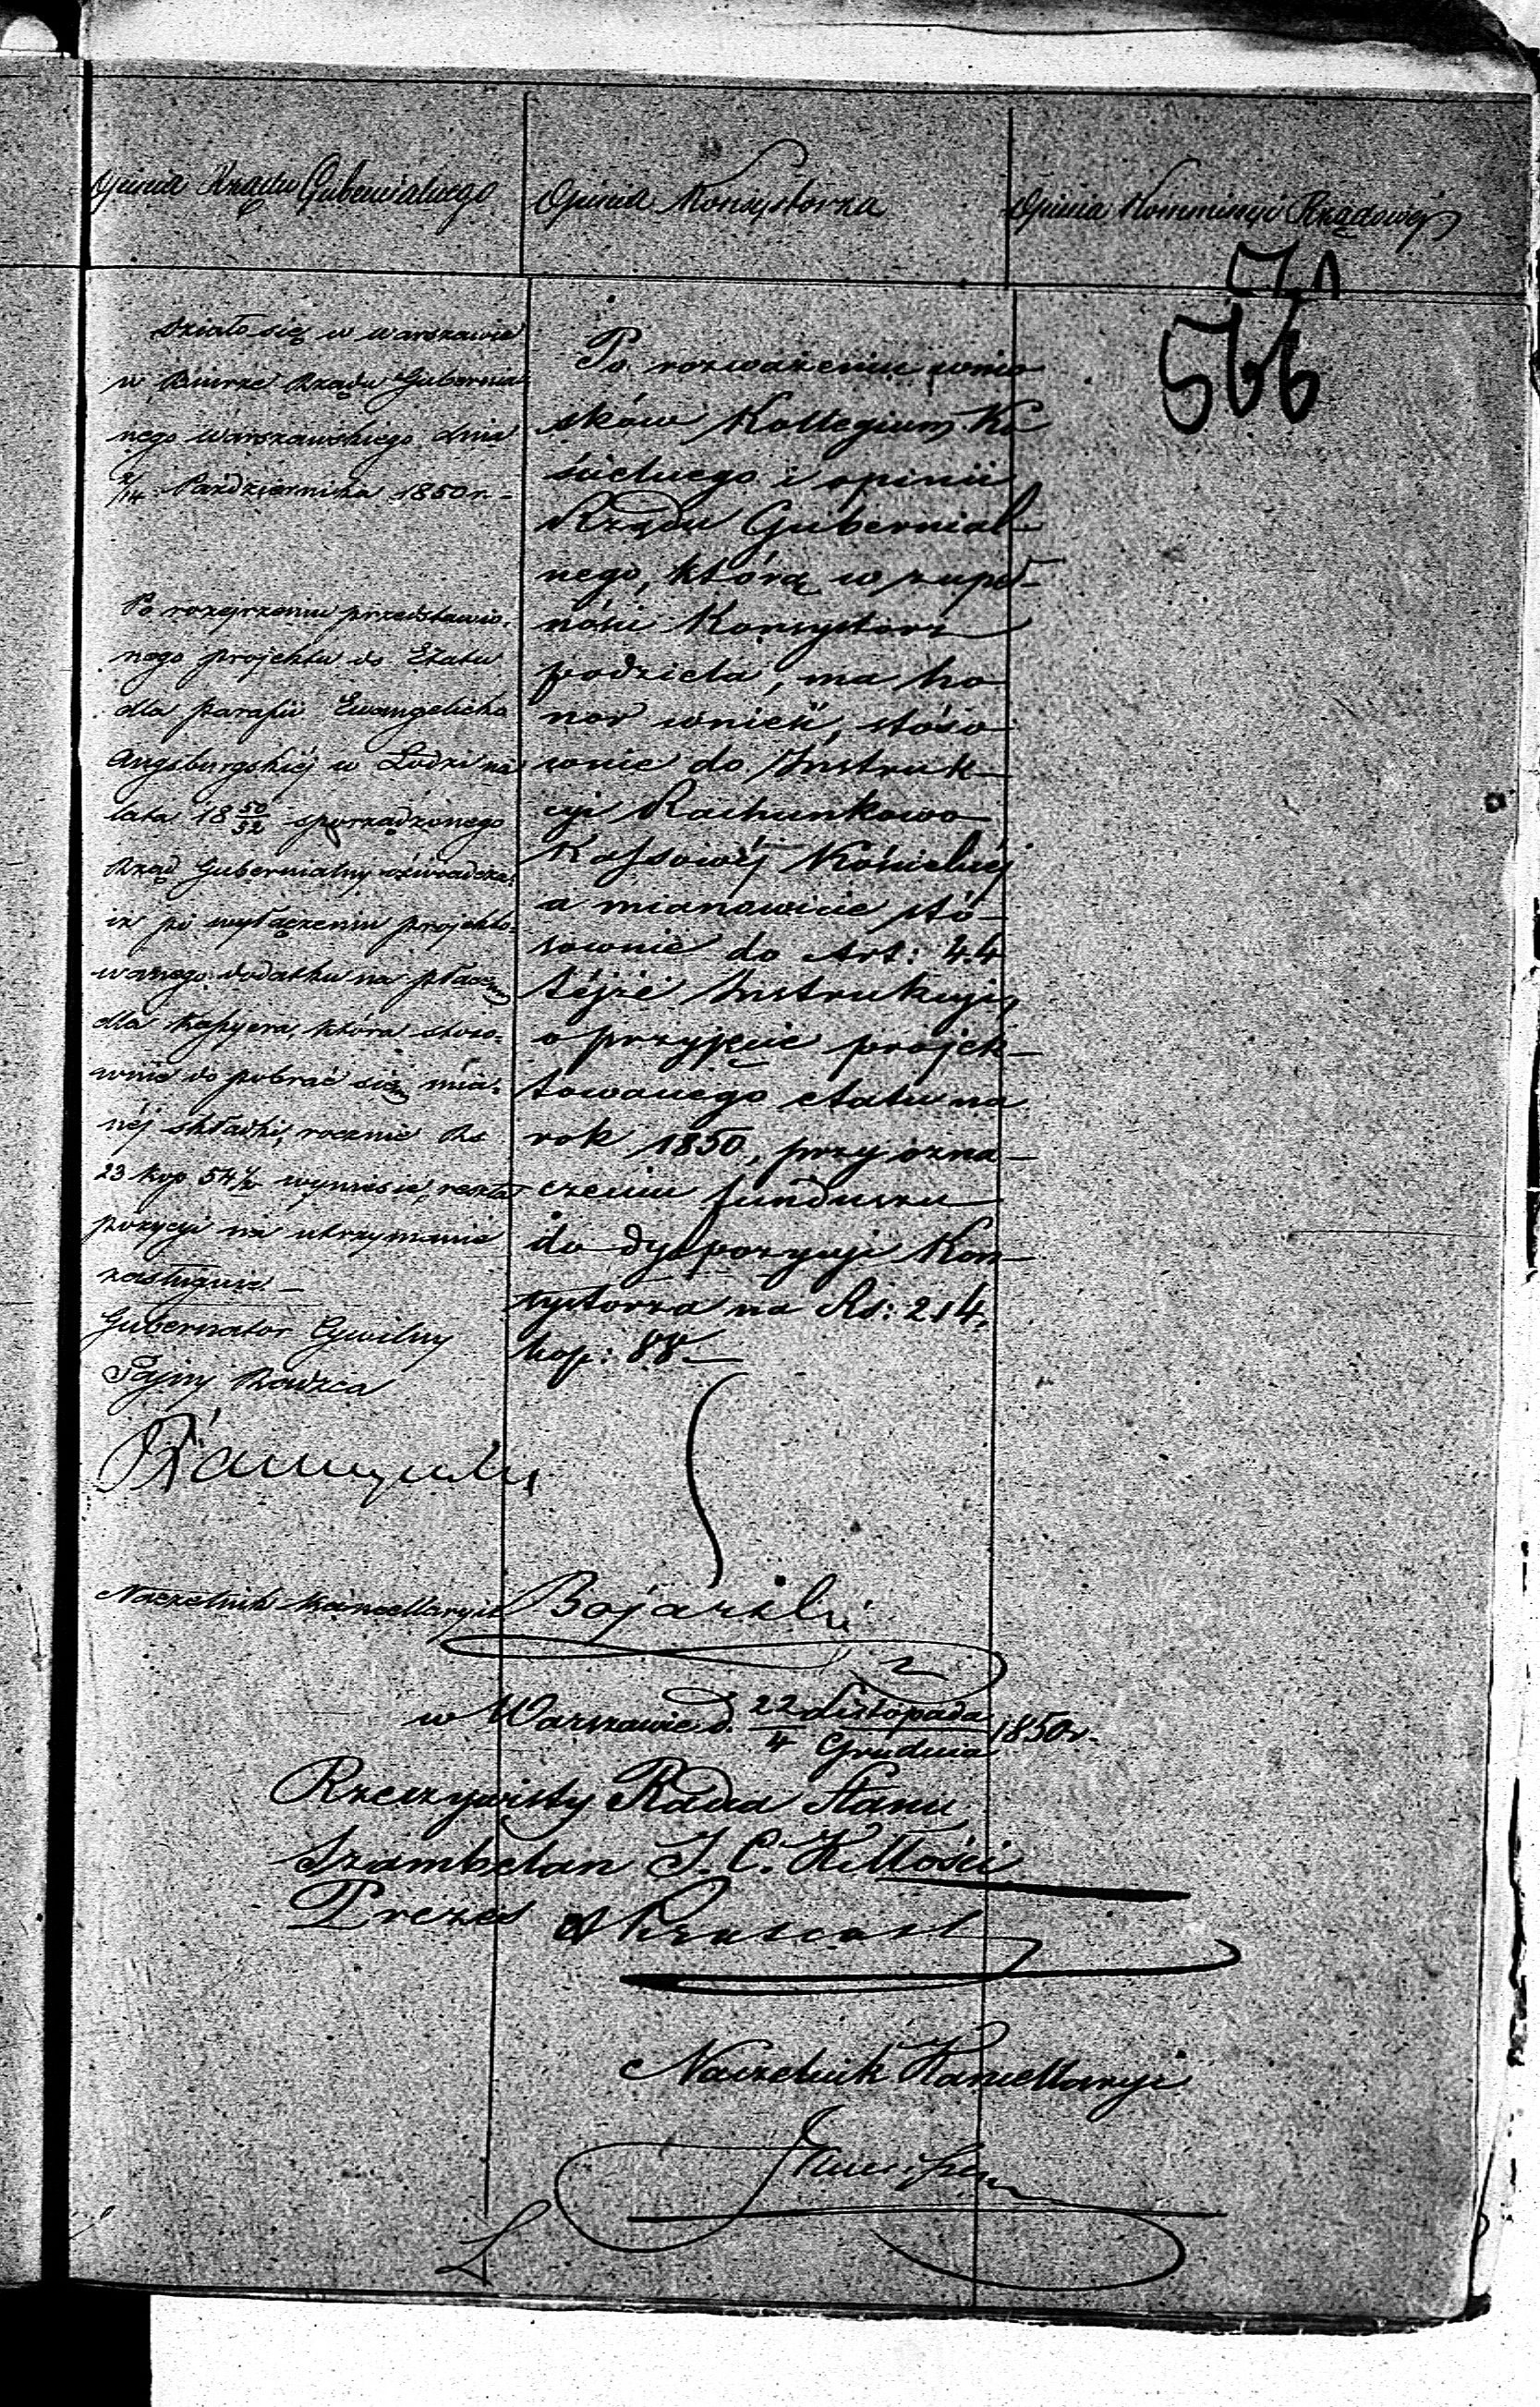 Opinia Rządu Gubernialnego
Opinia Konsystorza
Opinia Kommissyi Rządowéj
566
Działo się w Warszawie
w Biurze Rządu Gubernial
nego Warszawskiego dnia
2/14 Października 1850 r.
Po rozejrzeniu przedstawio-
nego projektu do Etatu
dla parafii Ewangelicko
Augsburgskiéj w Łodzi na
lata 18 50/52 sporządzonego
Rząd Gubernialny oświadcza:
iż po wyłączeniu projekto-
wanego dodatku na płacę
dla Kassyera, która stoso-
wnie do pobrać się mia-
néj składki, rocznie Rs
23 kop 54½ wyniesie, reszta
pozycji na utrzymanie
zasługuie
Gubernator Cywilny
Tajny Radzca
Naczelnik Kancellaryi
Bojarski
Po rozważeniu wnio
sków Kollegium Ko
ścielnego i opinii
Rządu Gubernial-
nego, którą w zupeł-
ności Konsystorz
podziela, ma ho
nor wnieść, stóso
wnie do Instruk-
cyi Rachunkowo
Kassowéj Kościelnéj
a mianowicie stó-
sownie do Art: 44
téjże Instrukcyi,
o przyjęcie projek-
towanego etatu na
rok 1850, przy ozna-
czeniu funduszu
do dyspozycyi Kon-
systorza na Rs: 214,
kop: 88
w Warszawie d. 22 Listopada / 4 Grudnia 1850 r.
Rzeczywisty Radca Stanu
Szambelan J. C. K. Mości
Prezes
Naczelnik Kancellaryi